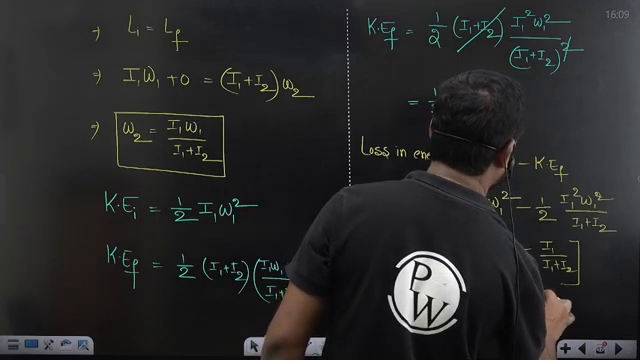 ⇒ L₁ = L_f
⇒ I₁W₁ + 0 = (I₁+I₂)ω₂
⇒ ω₂ = I₁W₁/(I₁+I₂)
K.Eᵢ = 1/2 I₁ω₁²
K.E_f = 1/2 (I₁+I₂) (I₁W₁/
K.E_f = 1/2 (I₁+I₂) I₁²ω₁²/(I₁+I₂)²
=
Loss in − K.E_f
− 1/2 I₁²ω₁²/(I₁+I₂)
− I₁/(I₁+I₂)]
PW
16:09